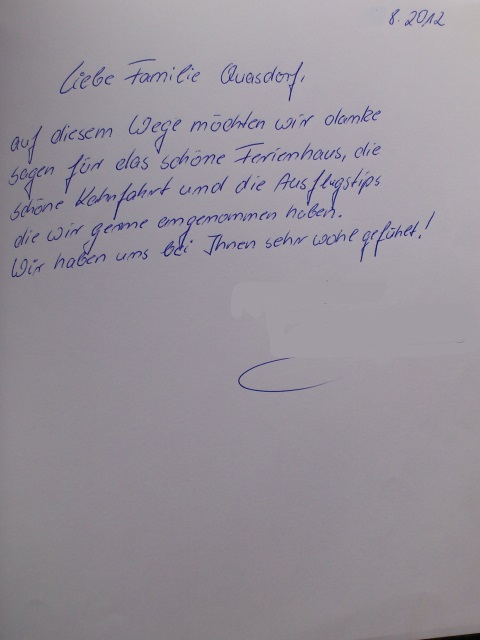 8.2012
Liebe Familie Quasdorf,
auf diesem Wege möchten wir danke
sagen für das schöne Ferienhaus, die
schöne Kahnfahrt und die Ausflugstips
die wir gerne angenommen haben.
Wir haben uns bei Ihnen sehr wohl gefühlt!